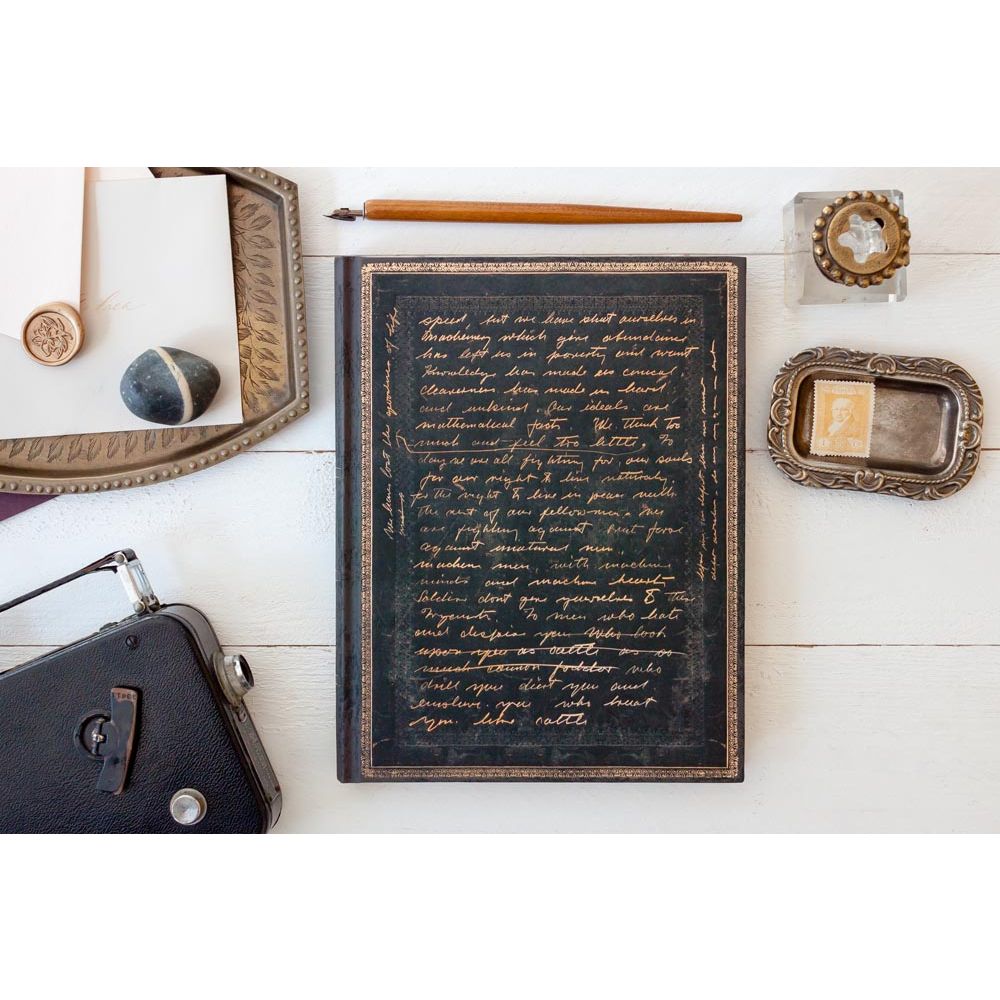 speed, but we have shut ourselves in
machinery which give abundance
has left us in poverty and want
Knowledge has made us cynical
cleverness has made us hard
and unkind. Our ideals are
mathematical facts. We think too
much and feel too little. To
day we are all fighting for our souls
for our right to live naturally
for the right to live in peace with
the rest of our fellow men. We
are fighting against brut force
against unnatural men.
machine men, with machine
minds and machine hearts
Soldiers dont give yourselves to these
To men who hate
and despise you Who look
upon you as cattle as so
much cannon fodder who
drill you diet you and
enslave you who treat
you like cattle
We have lost the